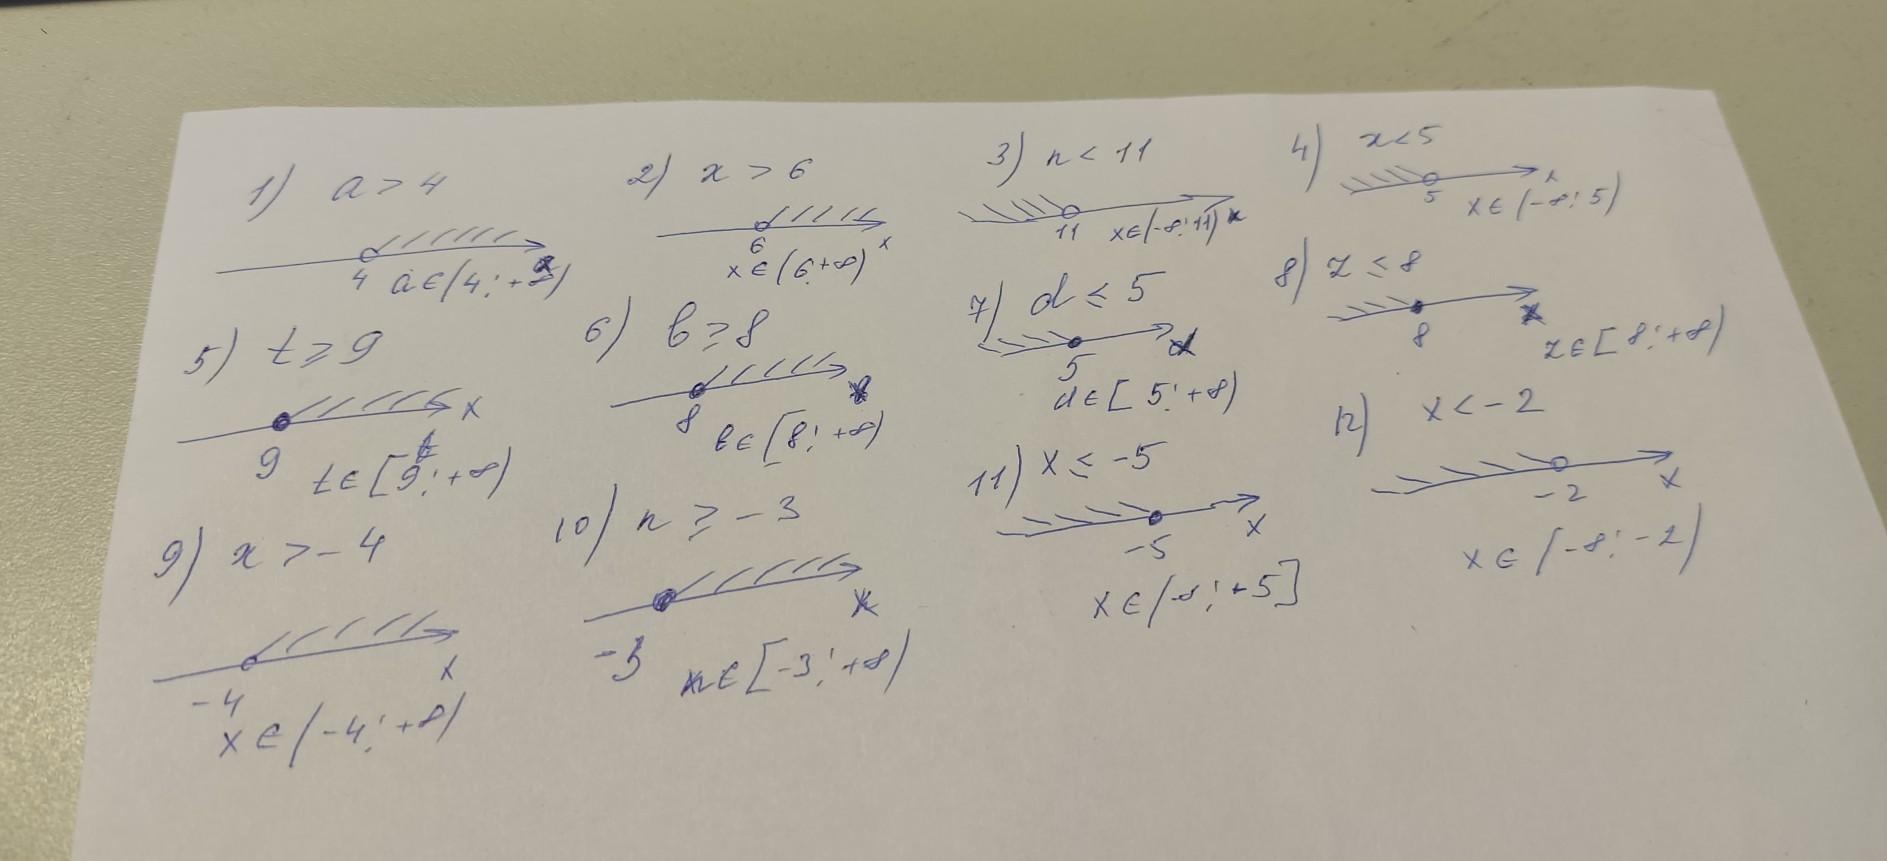 1) a > 4
4
a ∈ (4; +∞)
2) x > 6
6 x
x ∈ (6; +∞)
3) n < 11
11 x ∈ (-∞; 11) x
4) x < 5
x
5 x ∈ (-∞; 5)
5) t ≥ 9
x
9 t
t ∈ [9; +∞)
6) b ≥ 8
8
b ∈ [8; +∞)
7) d ≤ 5
d
5
d ∈ [5; +∞)
8) z ≤ 8
8 x
z ∈ [8; +∞)
9) x > -4
x
-4
x ∈ (-4; +∞)
10) n ≥ -3
x
-3
n ∈ [-3; +∞)
11) x ≤ -5
-5 x
x ∈ (-∞; +5]
12) x < -2
-2 x
x ∈ (-∞; -2)